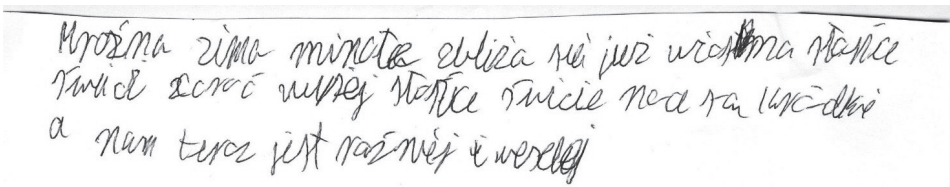 Mroźna zima mineła zbliża się już wiosna słońce
świeci corać wyżej słońce świcie nad
a nam teraz jest raźniej i weselej